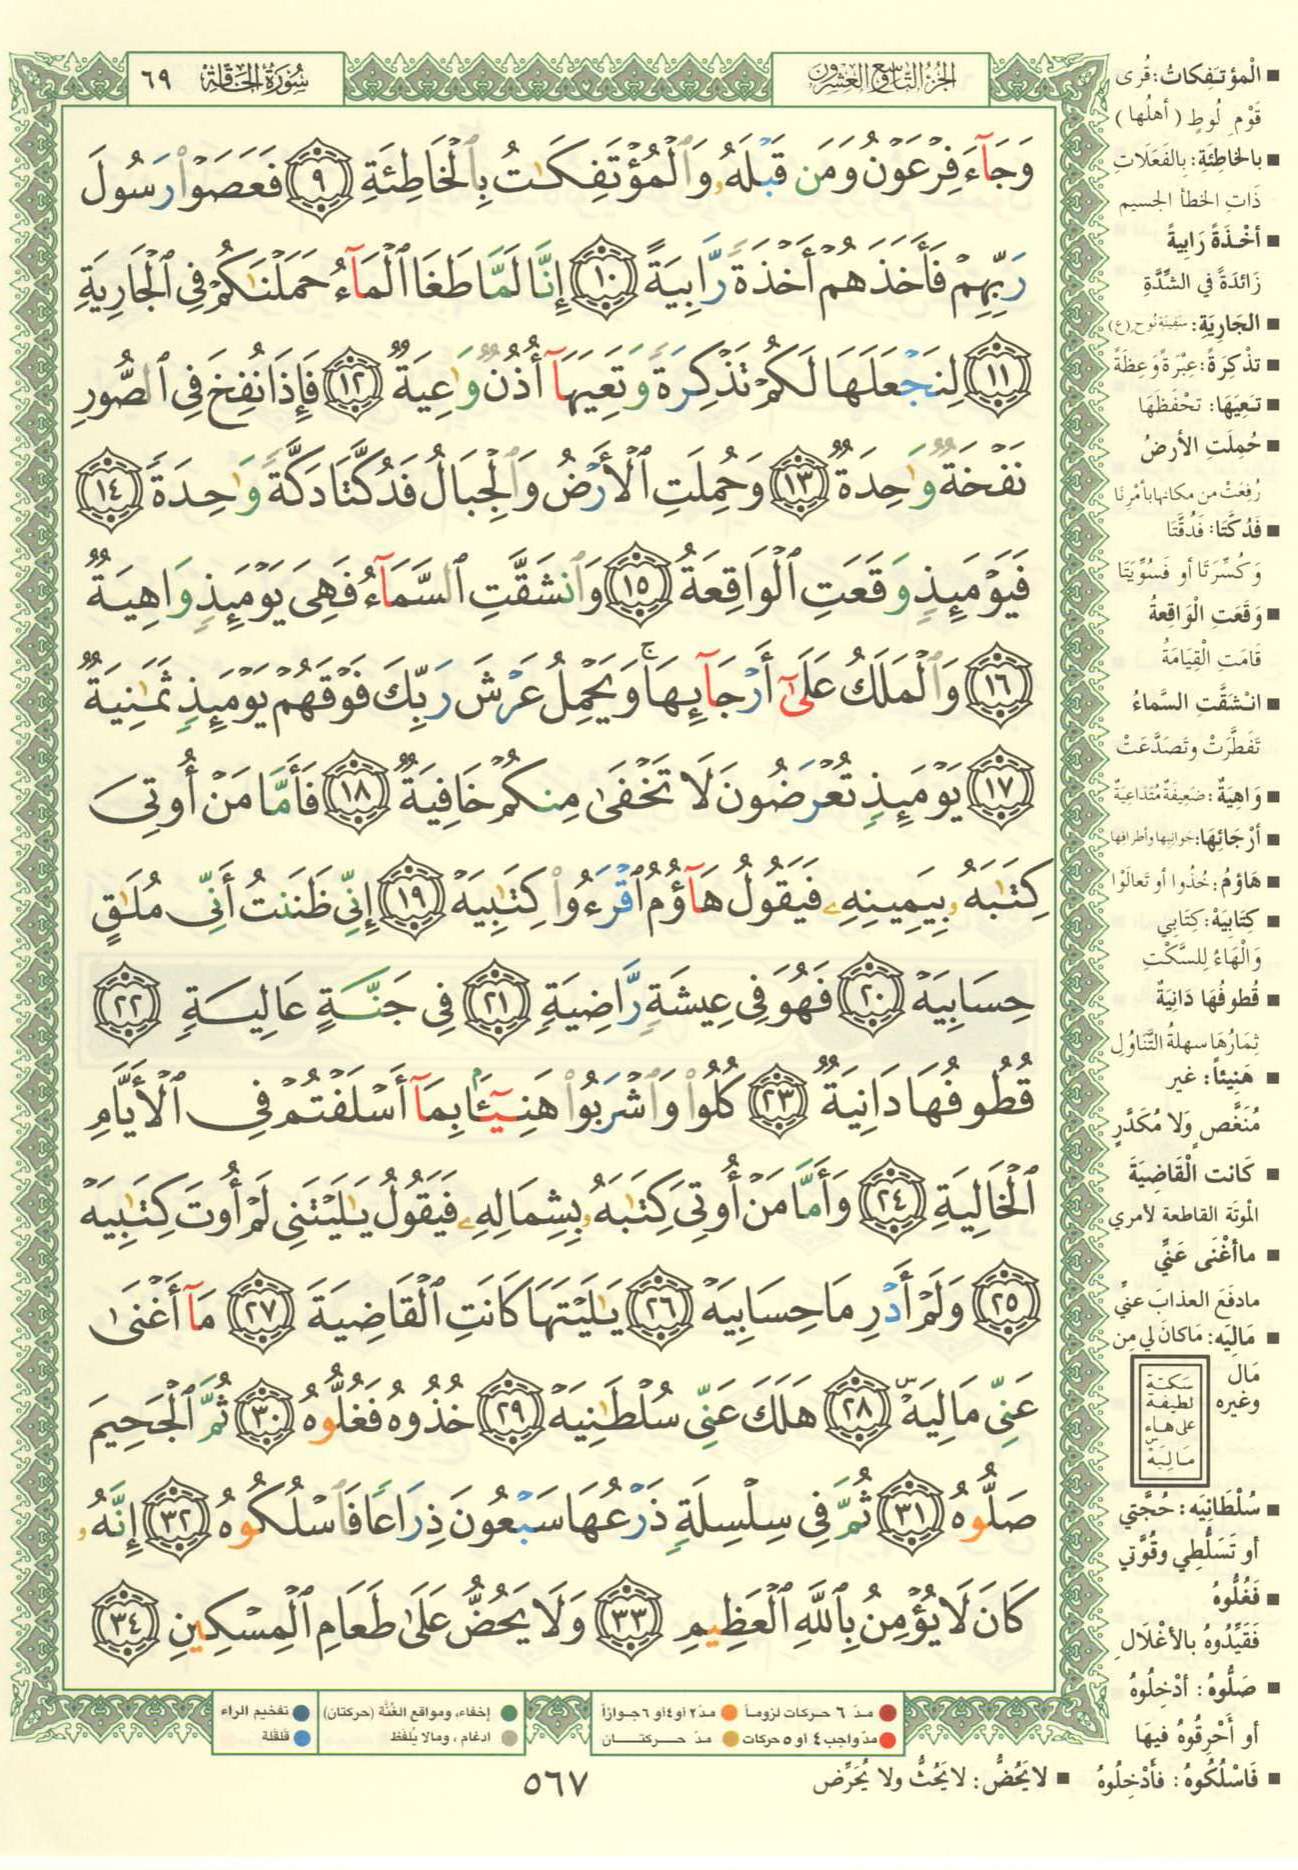 الجزء التاسع والعشرون
سورة الحاقة ٦٩
وَجَآءَ فِرْعَوْنُ وَمَن قَبْلَهُۥ وَٱلْمُؤْتَفِكَـٰتُ بِٱلْخَاطِئَةِ ٩ فَعَصَوْا۟ رَسُولَ
رَبِّهِمْ فَأَخَذَهُمْ أَخْذَةً رَّابِيَةً ١٠ إِنَّا لَمَّا طَغَا ٱلْمَآءُ حَمَلْنَـٰكُمْ فِى ٱلْجَارِيَةِ
١١ لِنَجْعَلَهَا لَكُمْ تَذْكِرَةً وَتَعِيَهَآ أُذُنٌ وَٰعِيَةٌ ١٢ فَإِذَا نُفِخَ فِى ٱلصُّورِ
نَفْخَةٌ وَٰحِدَةٌ ١٣ وَحُمِلَتِ ٱلْأَرْضُ وَٱلْجِبَالُ فَدُكَّتَا دَكَّةً وَٰحِدَةً ١٤
فَيَوْمَئِذٍ وَقَعَتِ ٱلْوَاقِعَةُ ١٥ وَٱنشَقَّتِ ٱلسَّمَآءُ فَهِىَ يَوْمَئِذٍ وَاهِيَةٌ
١٦ وَٱلْمَلَكُ عَلَىٰٓ أَرْجَآئِهَا ۚ وَيَحْمِلُ عَرْشَ رَبِّكَ فَوْقَهُمْ يَوْمَئِذٍ ثَمَـٰنِيَةٌ
١٧ يَوْمَئِذٍ تُعْرَضُونَ لَا تَخْفَىٰ مِنكُمْ خَافِيَةٌ ١٨ فَأَمَّا مَنْ أُوتِىَ
كِتَـٰبَهُۥ بِيَمِينِهِۦ فَيَقُولُ هَآؤُمُ ٱقْرَءُوا۟ كِتَـٰبِيَهْ ١٩ إِنِّى ظَنَنتُ أَنِّى مُلَـٰقٍ
حِسَابِيَهْ ٢٠ فَهُوَ فِى عِيشَةٍ رَّاضِيَةٍ ٢١ فِى جَنَّةٍ عَالِيَةٍ ٢٢
قُطُوفُهَا دَانِيَةٌ ٢٣ كُلُوا۟ وَٱشْرَبُوا۟ هَنِيٓـًٔۢا بِمَآ أَسْلَفْتُمْ فِى ٱلْأَيَّامِ
ٱلْخَالِيَةِ ٢٤ وَأَمَّا مَنْ أُوتِىَ كِتَـٰبَهُۥ بِشِمَالِهِۦ فَيَقُولُ يَـٰلَيْتَنِى لَمْ أُوتَ كِتَـٰبِيَهْ
٢٥ وَلَمْ أَدْرِ مَا حِسَابِيَهْ ٢٦ يَـٰلَيْتَهَا كَانَتِ ٱلْقَاضِيَةَ ٢٧ مَآ أَغْنَىٰ
عَنِّى مَالِيَهْ ۜ ٢٨ هَلَكَ عَنِّى سُلْطَـٰنِيَهْ ٢٩ خُذُوهُ فَغُلُّوهُ ٣٠ ثُمَّ ٱلْجَحِيمَ
صَلُّوهُ ٣١ ثُمَّ فِى سِلْسِلَةٍ ذَرْعُهَا سَبْعُونَ ذِرَاعًا فَٱسْلُكُوهُ ٣٢ إِنَّهُۥ
كَانَ لَا يُؤْمِنُ بِٱللَّهِ ٱلْعَظِيمِ ٣٣ وَلَا يَحُضُّ عَلَىٰ طَعَامِ ٱلْمِسْكِينِ ٣٤
■ الْمؤتَفِكاتُ: قُرى
قَوْمِ لُوطٍ (أهلُها)
■ بالخاطِئَةِ: بِالفَعَلَاتِ
ذَاتِ الخطأ الجسيم
■ أخْذَةً رَابِيةً
زَائدَةً في الشِّدَّةِ
■ الجَارِيَةِ: سَفِينَةِ نُوح (ع)
■ تذْكِرَةً: عِبْرَةً وَعِظَةً
■ تَعِيَهَا: تحْفَظَهَا
■ حُمِلَتِ الأرضُ
رُفِعَتْ من مكانها بأمْرِنَا
■ فَدُكَّتَا: فَدُقَّتَا
وَكُسِّرَتَا أو فَسُوِّيَتَا
■ وَقَعَتِ الْوَاقِعَةُ
قَامَتِ الْقِيَامَةُ
■ انْشَقَّتِ السَّماءُ
تَفَطَّرَتْ وتَصَدَّعَتْ
■ وَاهِيَةٌ: ضَعِيفَةٌ مُتَدَاعِيَةٌ
■ أرْجَائِهَا: جَوانِبِها وأطرافِها
■ هَاؤمُ: خُذُوا أو تَعالَوْا
■ كِتَابِيَهْ: كِتَابِي
وَالْهَاءُ لِلسَّكْتِ
■ قُطوفُهَا دَانِيَةٌ
ثِمَارُهَا سهلةُ التَّنَاوُلِ
■ هَنِيئاً: غير
مُنَغَّصٍ وَلا مُكَدَّرٍ
■ كَانت الْقَاضِيَةَ
الموتَة القاطعة لأمري
■ ما أغْنَى عَنِّي
ما دفَعَ العذابَ عنِّي
■ مَالِيَه: مَا كانَ لي مِن
مَال
وغيره
سكتة
لطيفة
على هاء
مَالِيَهْ
■ سُلْطَانِيَه: حُجَّتي
أو تَسَلُّطِي وقُوَّتي
■ فَغُلُّوهُ
فَقَيِّدُوهُ بالأغْلَالِ
■ صَلُّوهُ: أدْخِلُوهُ
أو أَحْرِقُوهُ فيهَا
■ فَاسْلُكُوهُ: فأَدْخِلُوهُ ■ لا يَحُضُّ: لا يَحُثُّ ولا يُحَرِّض
مدّ ٦ حركات لزوماً مدّ ٢ أو ٤ أو ٦ جوازاً
مدّ واجب ٤ أو ٥ حركات مدّ حركتان
إخفاء، ومواقع الغُنَّة (حركتان) تفخيم الراء
ادغام، ومالا يُلفظ قلقلة
٥٦٧